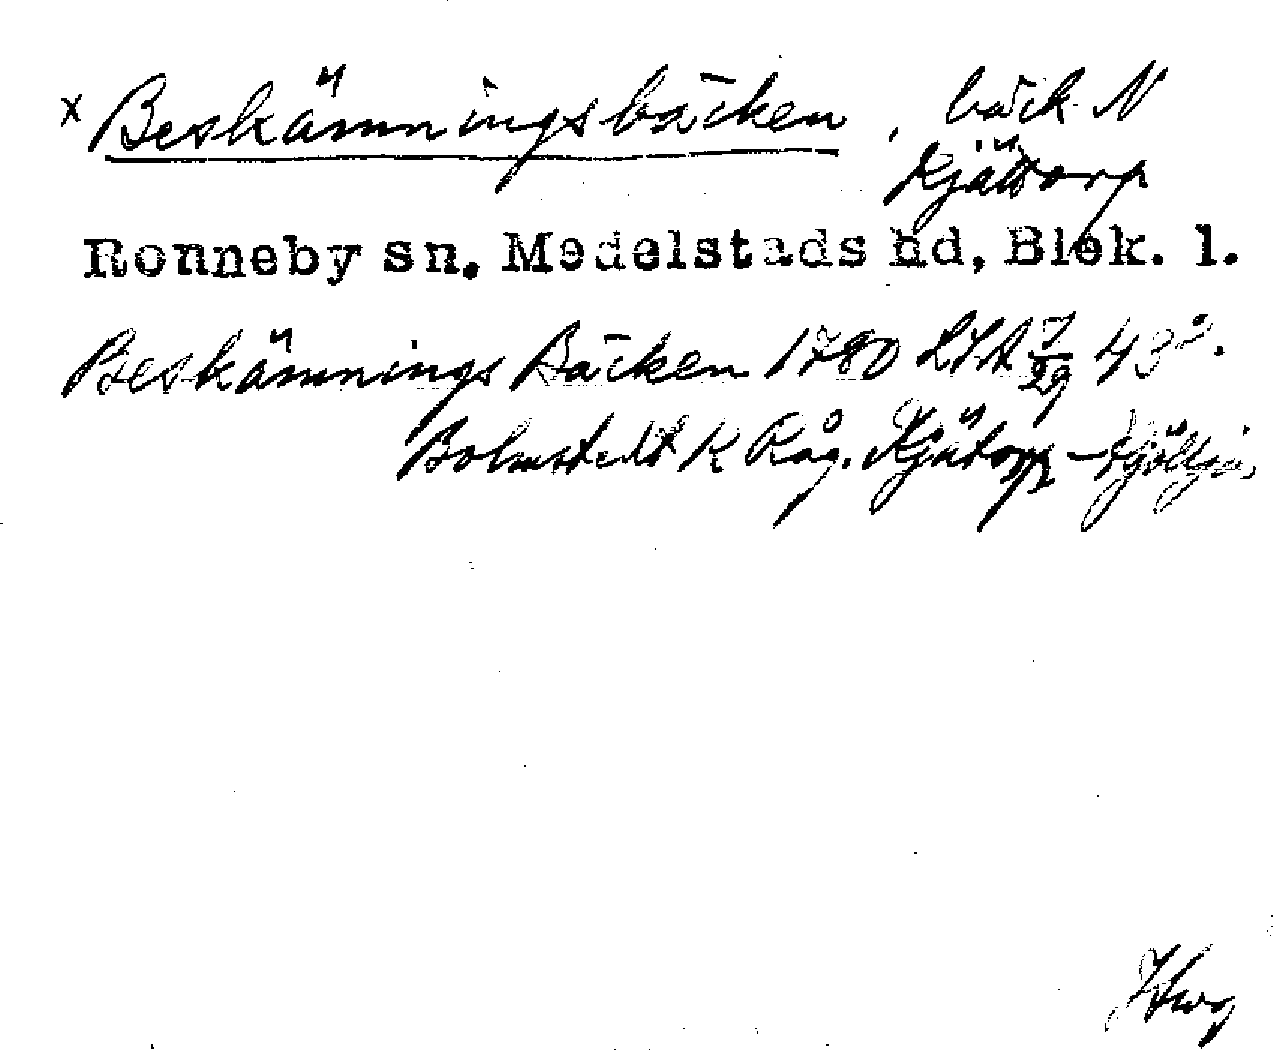 x Beskämningsbäcken, bäck N
Kjättorp
Ronneby sn. Medelstads hd, Blek. l.
Beskämnings Bäcken 1780 LSA 7/29 43².
Bolmstedt K Råg. Kjätorp –